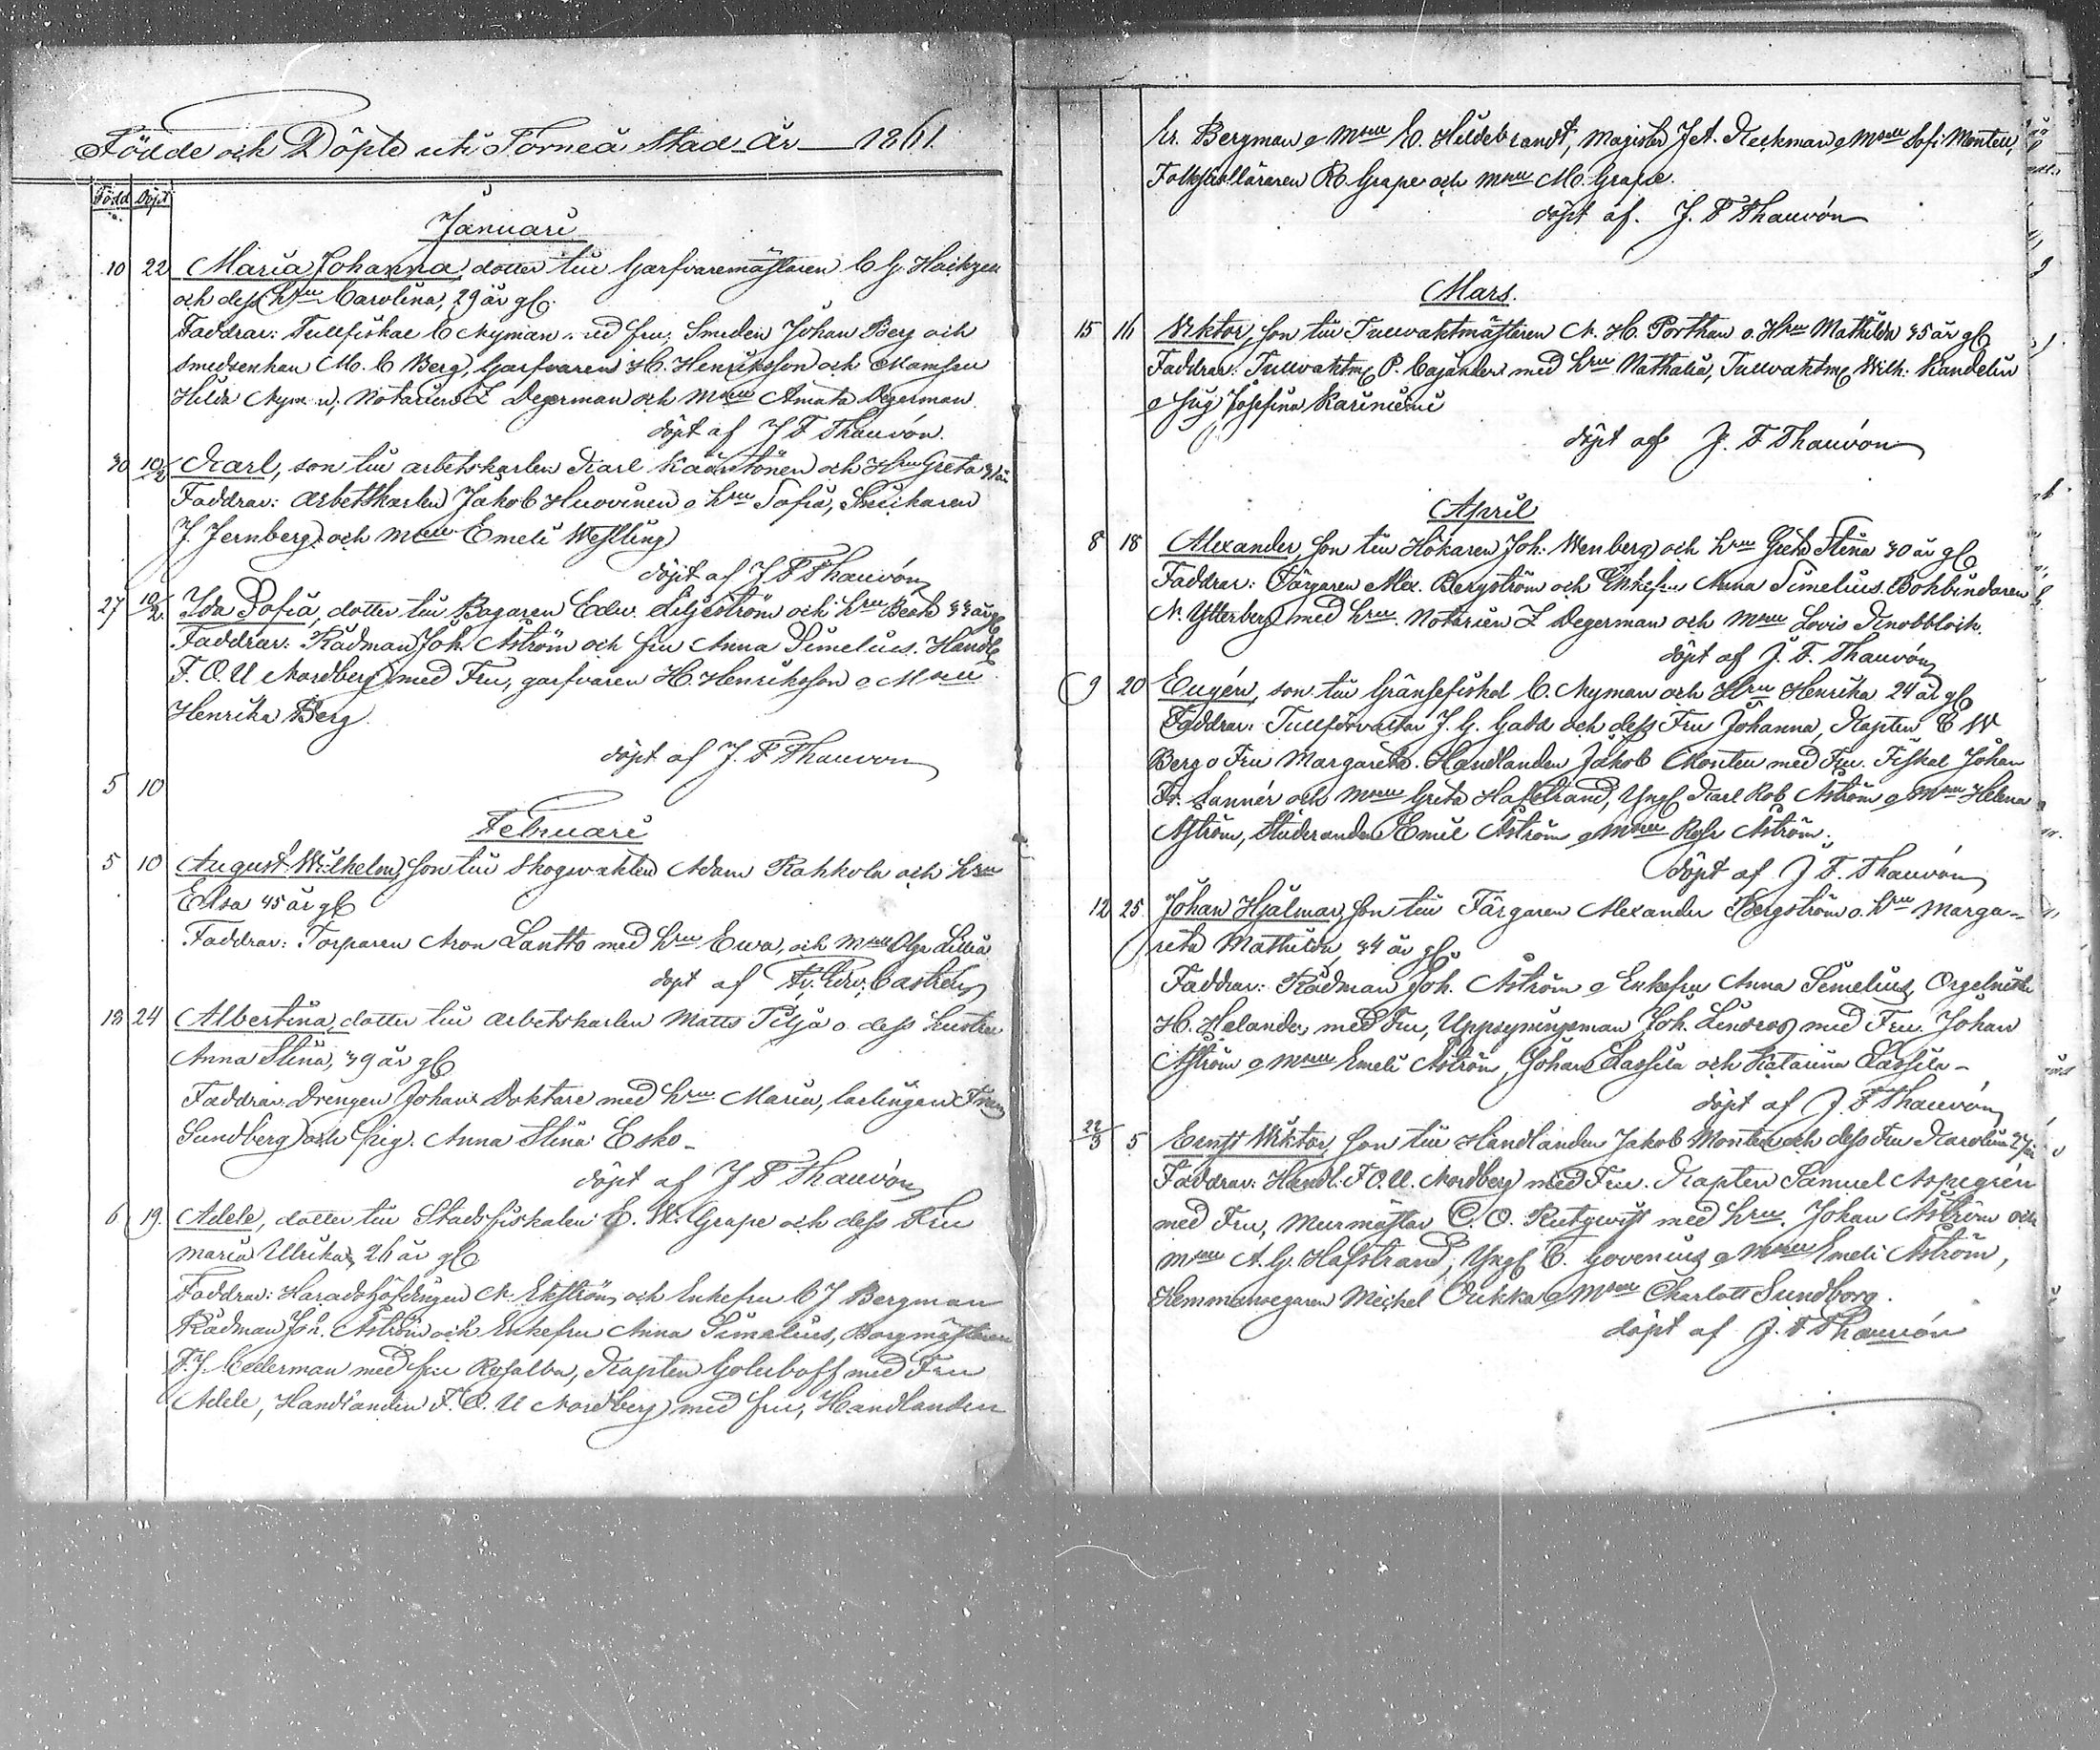 Födde och Döpte uti Torneå Stad År 1861.
Född Döpt
Januari
10 22 Maria Johanna, dotter till Garfvaremästaren C G.
och dess hru Carolina, 29 år gl.
Faddrar: Tullfiskal C Nyman med fru. Smeden Johan Berg och
smedsenkan M. C Berg, Garfvaren H. Henriksson och Mamsell
Hilda Nyman, Notarien Z Degerman och Msell Amata Degerman.
döpt af J F Thauvón.
30 10/2 Karl, son till arbetskarlen Karl och Hru Greta 31 år
Faddrar: arbetskarlen Jakob Huovinen o hru Sofia, Snickaren
J Jernberg och Msell Emeli Westling
döpt af J F Thauvón
27 10/2 Ida Sofia, dotter till Bagaren Edv. Liljeström och hru Beata 33 år gl
Faddrar: Rådman Joh Åström och fru Anna Simelius. Handl
F. O. U Nordberg med Fru, garfvaren H. Henriksson o Msell
Henrika Berg.
döpt af J. F Thauvon
5 10
Februari
5 10 August Wilhelm, son till Skogvakten Adam Rahkola och hru
Elsa 45 år gl
Faddrar: Torparen Aron Lantto med hru Ewa, och Msell Olga Lillia
döpt af Castrén
13 24 Albertina, dotter till arbetskarlen Matts Pilja o. dess hustru
Anna Stina, 39 år gl
Faddrar. Drengen Johan Doktare med hru Maria, lärlingen Frans
Sundberg och pig. Anna Stina Esko -
döpt af J F Thauvón
6 19. Adele, dotter till Stadsfiskalen E. W. Grape och dess Fru
Maria Ulrika, 26 år gl
Faddrar: Häradshöfdingen N. Ekström och Enkefru C J Bergman
Rådman Joh. Åström och Enkefru Anna Simelius, Borgmästaren
F. J. Cederman med fru Rosalba, Kapten Goluboff med Fru
Adele, Handlanden F. O. U Nordberg med fru, Handlanden
Er. Bergman o Msell E. Hildebrandt, Magister J A. Keckman o Msell Sofi Monteu,
Folkskolläraren R. Grape och Msell M. Grape.
döpt af. J. F Thauvón
Mars.
15 16 Viktor, son till Tullvaktmästaren N. H. Porthan o. Hru Mathilda 35 år gl
Faddrar: Tullvaktm P. Cajander med hru Nathalia, Tullvaktm Wilh. Kandelin
o pig Josefina Kariniemi
döpt af J. F Thauvón
April
8 18 Alexander, son till Hökaren Joh. Wenberg och hru Greta Stina 30 år gl
Faddrar: Färgaren Alex. Bergström och Enkefru Anna Simelius. Bokbindaren
N. Ytterberg med hru. Notarien Z Degerman och Msell Lovis Knobblock.
döpt af J. F. Thauvón
9 20 Eugén, son till Gränsefiskal C. Nyman och Hru Henrika 24 år gl
Faddrar: Tullförvaltar J. G. Gadd och dess Fru Johanna, Kapten E W
Berg o Fru Margareta. Handlanden Jakob Monteu med Fru. Fiskal Johan
Fr. Lannér och Msell Greta Hafstrand, Yngl Karl Rob Åström o Msell Helena
Åström, Studeranden Emil Åström o Msell Åström.
döpt af J F. Thauvón
12 25. Johan Hjalmar, son till Färgaren Alexander Bergström o. hru Marga-
reta Mathilda, 34 år gl
Faddrar: Rådman Joh. Åström o Enkefru Anna Simelius, Orgelnist
H. Helander med Fru, Uppsyningsman Joh. Lindros med Fru. Johan
Åström o Msell Emeli Åström, Johan Lassila och Katarina Lassila -
döpt af J. F Thauvón
22/3 5 Ernst Viktor, son till Handlanden Jakob Monteu och dess Fru Karolina 27 år
Faddrar: Handl. F. O. U. Nordberg med Fru. Kapten Samuel Aspegrén
med Fru, Murmästar C. O. Rutqvist med hru. Johan Åström och
Msell A. G. Hafstrand, Yngl C. Govenius o Msell Emeli Åström,
Hemmansegaren Mickel Oukka o Msell Charlott Sundborg.
döpt af J. F Thauvón